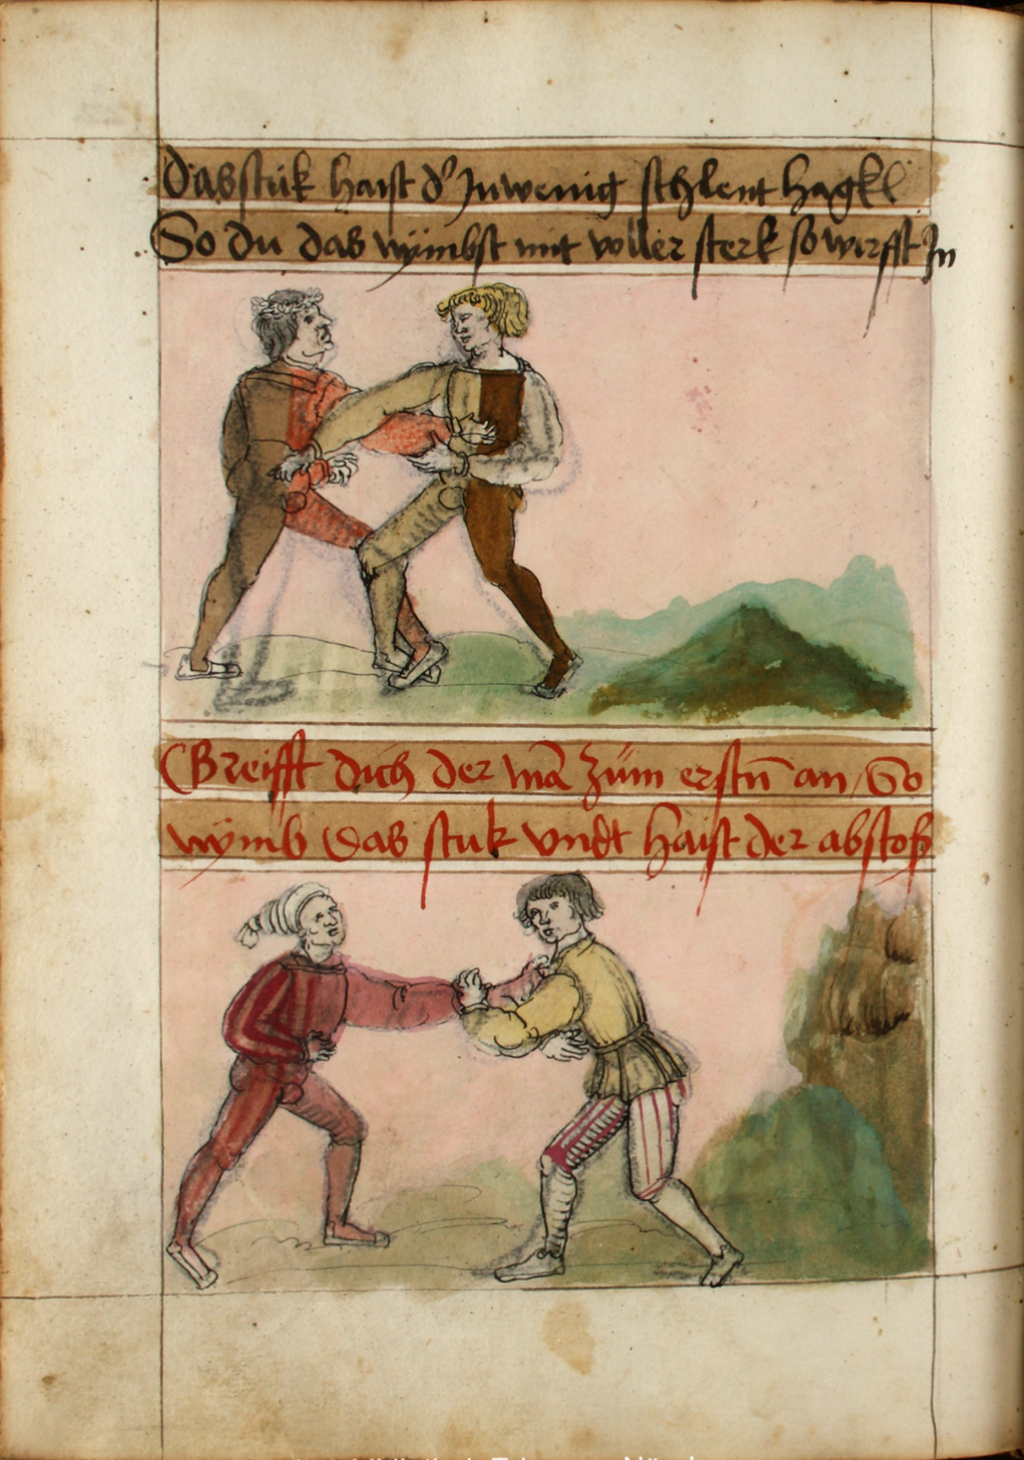 Das stuk haist d' Inwenig schlent hagkl
So du das nÿmbst mit voller sterk so wirfst In
Greifft dich der mā zum erstn̄ an / So
nÿmb das stuk vndt haist der abstoß